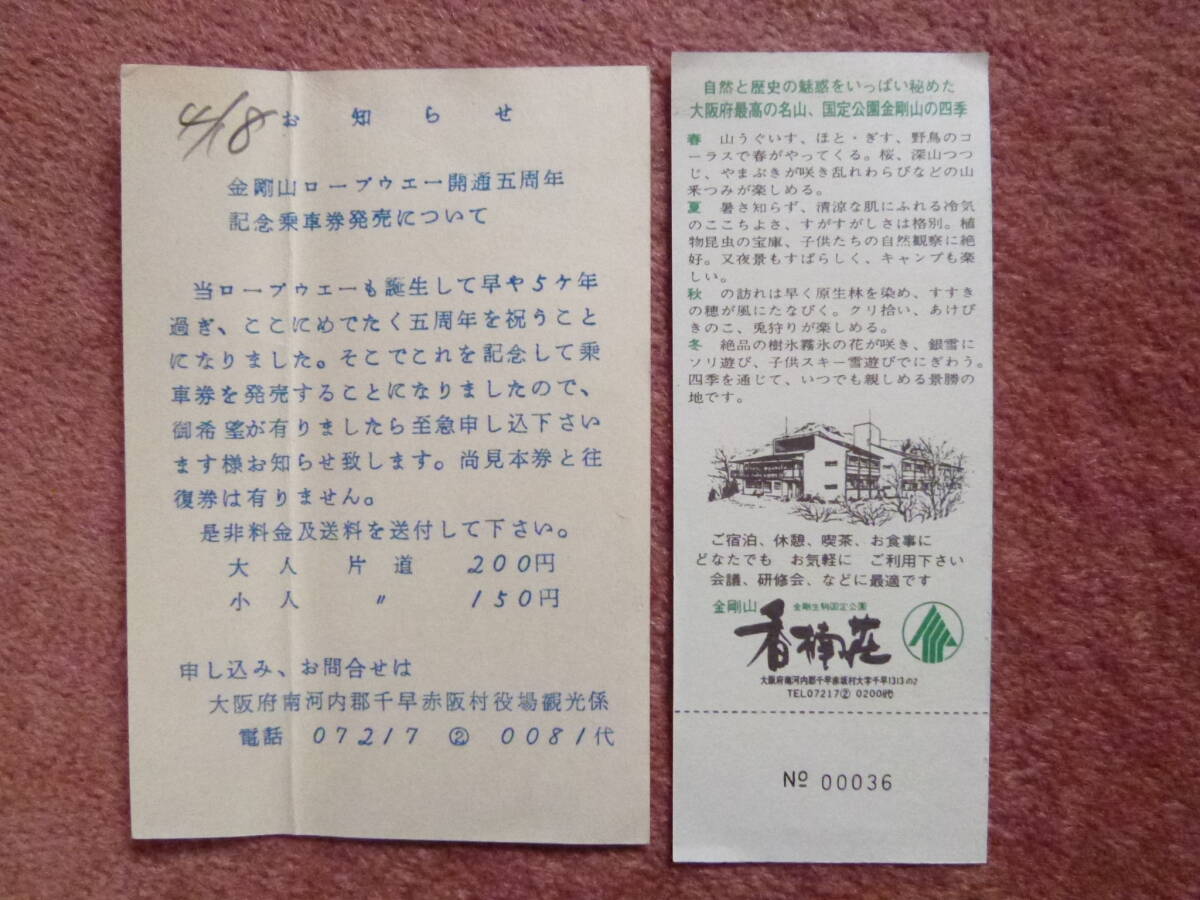 4/18
お知らせ
金剛山ロープウエー開通五周年
記念乗車券発売について
当ロープウエーも誕生して早や5ケ年
過ぎ、ここにめでたく五周年を祝うこと
になりました。そこでこれを記念して乗
車券を発売することになりましたので、
御希望が有りましたら至急申し込下さい
ます様お知らせ致します。尚見本券と往
復券は有りません。
是非料金及送料を送付して下さい。
大人 片道 200円
小人 〃 150円
申し込み、お問合せは
大阪府南河内郡千早赤阪村役場観光係
電話 07217 ② 0081代
自然と歴史の魅惑をいっぱい秘めた
大阪府最高の名山、国定公園金剛山の四季
春 山うぐいす、ほと・ぎす、野鳥のコ
ーラスで春がやってくる。桜、深山つつ
じ、やまぶきが咲き乱れわらびなどの山
菜つみが楽しめる。
夏 暑さ知らず、清涼な肌にふれる冷気
のここちよさ、すがすがしさは格別。植
物昆虫の宝庫、子供たちの自然観察に絶
好。又夜景もすばらしく、キャンプも楽
しい。
秋 の訪れは早く原生林を染め、すすき
の穂が風にたなびく。クリ拾い、あけび
きのこ、兎狩りが楽しめる。
冬 絶品の樹氷霧氷の花が咲き、銀雪に
ソリ遊び、子供スキー雪遊びでにぎわう。
四季を通じて、いつでも親しめる景勝の
地です。
ご宿泊、休憩、喫茶、お食事に
どなたでも お気軽に ご利用下さい
会議、研修会、などに最適です
金剛山 金剛生駒国定公園
香楠荘
大阪府南河内郡千早赤坂村大字千早1313の2
TEL07217② 0200代
№ 00036